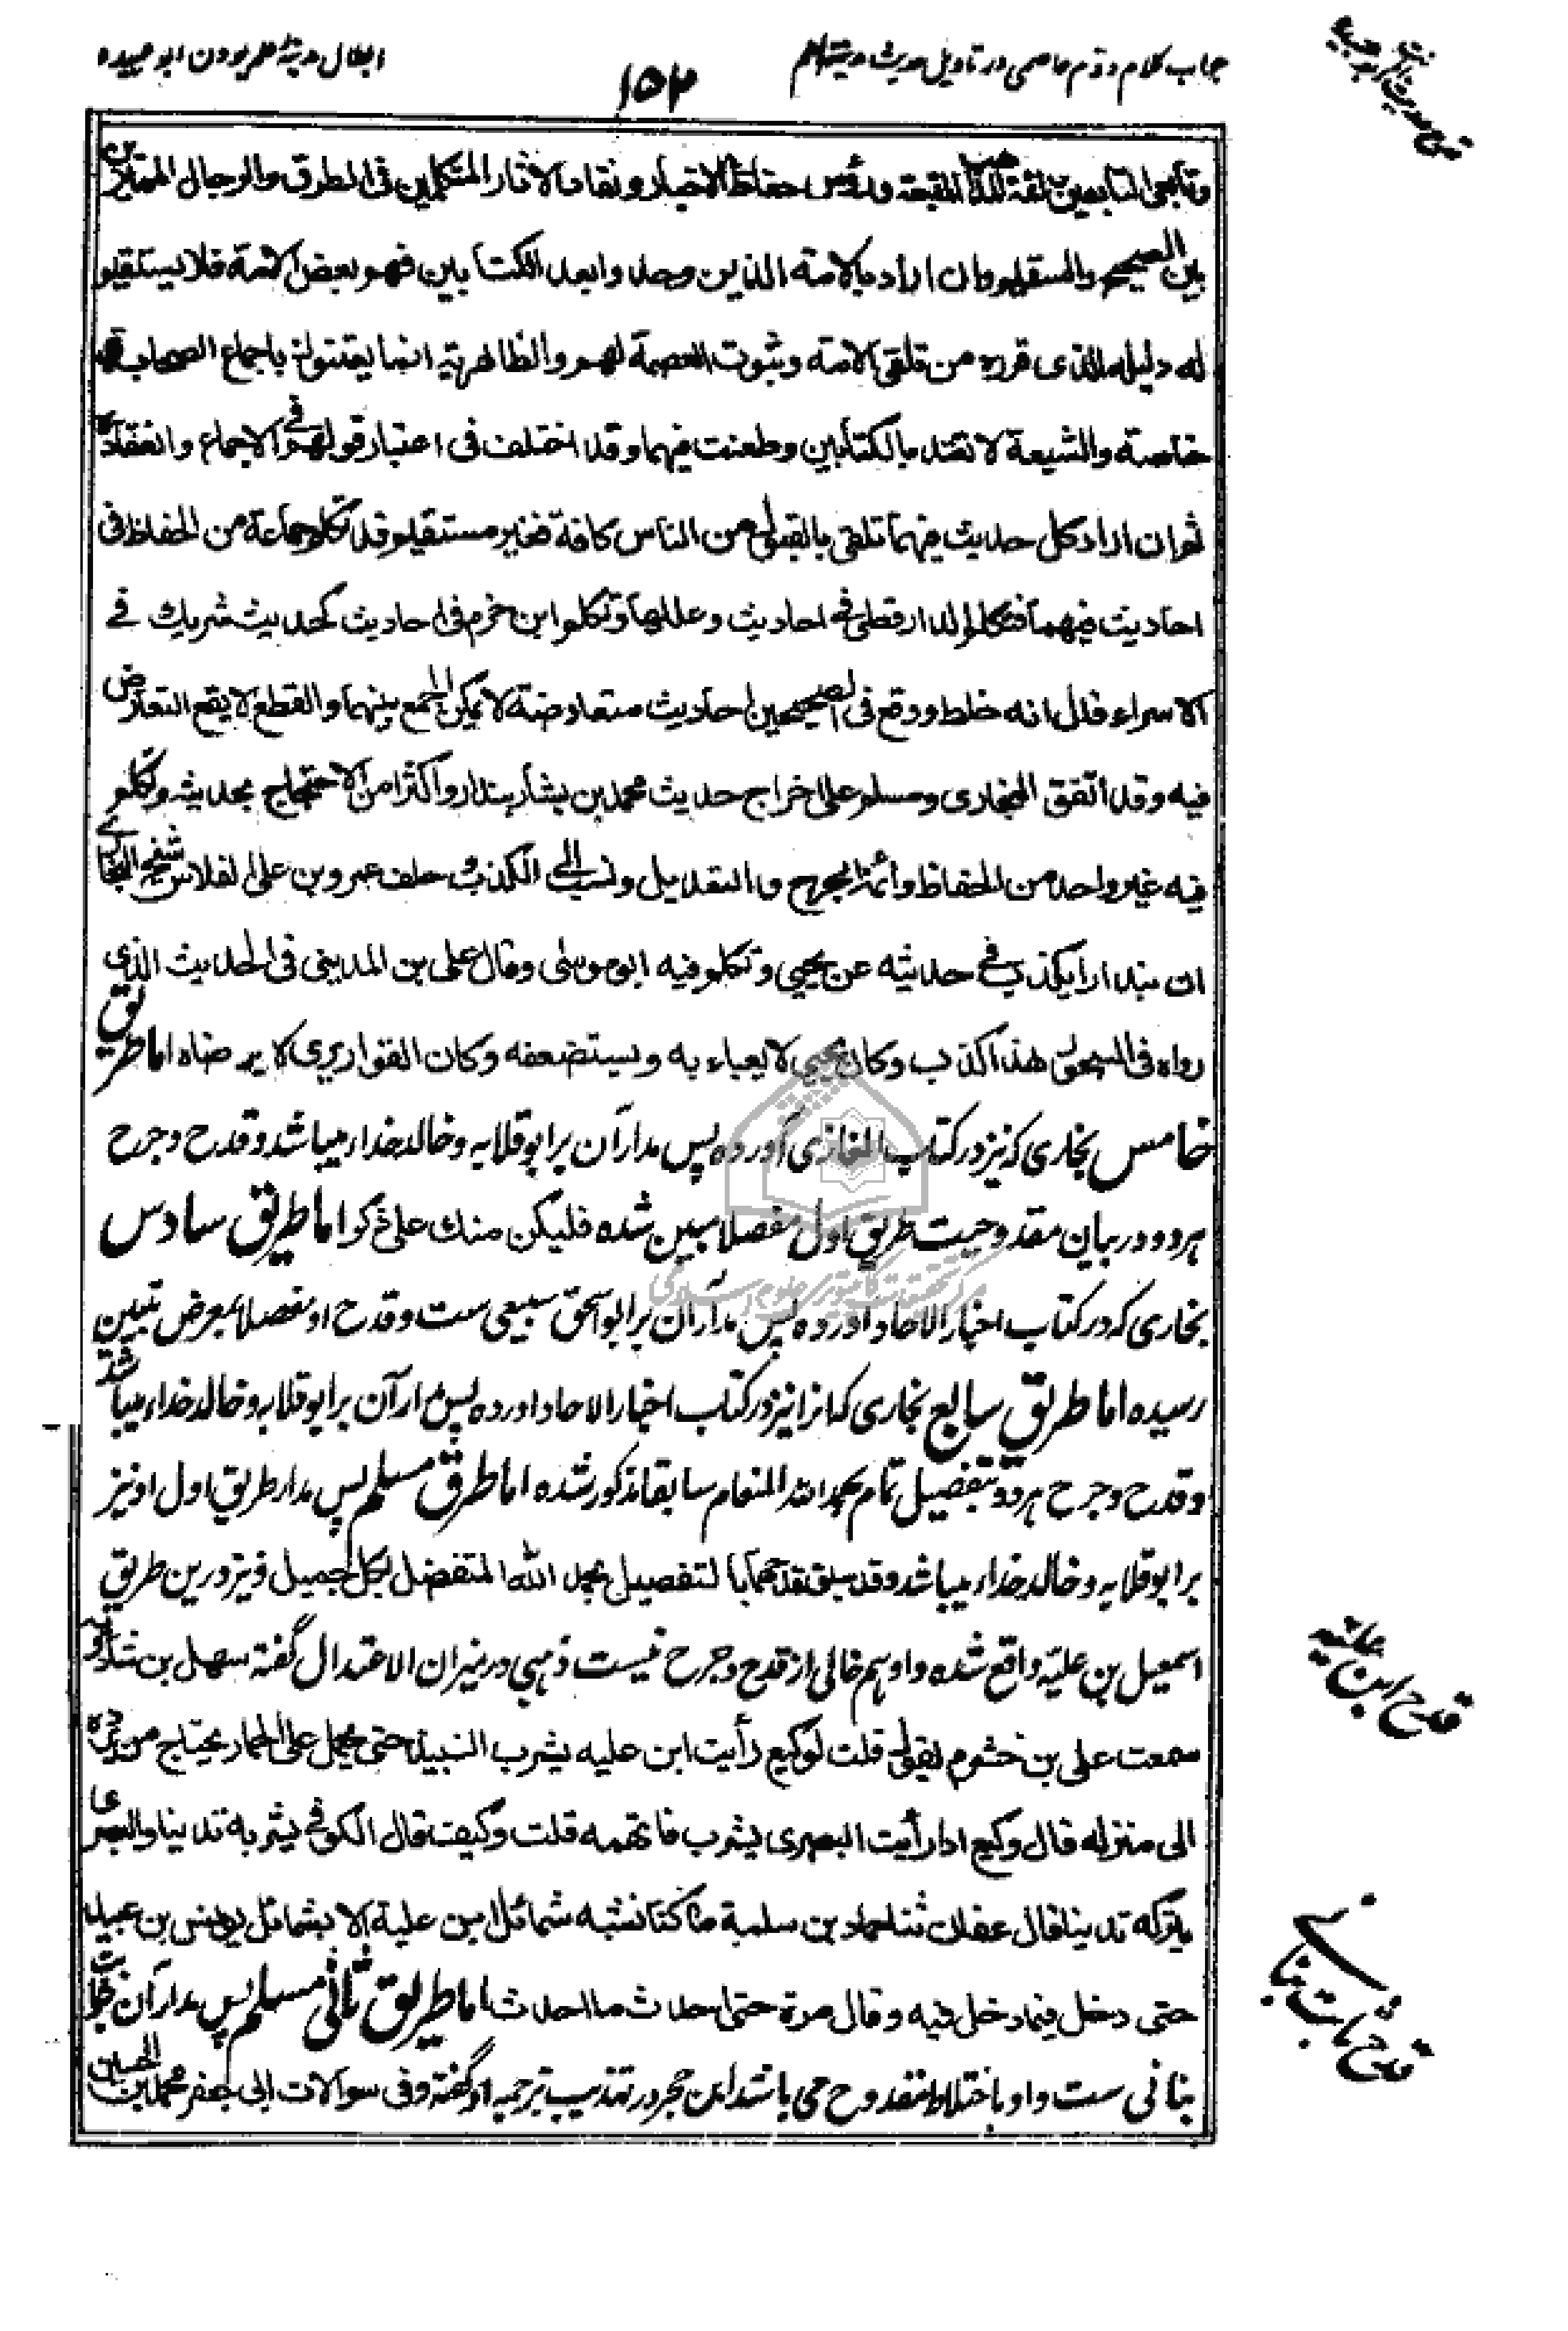 جواب کلام دوم عاصمی در تاویل حدیث مدینة العلم
۱۵۲
ابطال مدینة علم بودن ابو عبیده
وتابعی التابعین وثقة المذاهب المتبعة ورؤس حفاظ الاخبار ونقاد الاثار المتکلمین فی الطرق والرجال الممیزین
بین الصحیح والسقیم وان اراد بالامة الذین وجدوا بعد الکتابین فهم بعض الامة فلا یستقیم
له دلیله الذی قرره من تلقی الامة وثبوت العصمة لهم والظاهریة انما یعتنون باجماع الصحابة
خاصة والشیعة لا تعتد بالکتابین وطعنت فیهما وقد اختلف فی اعتبار قولهم فی الاجماع وانعقاده
ثم ان اراد کل حدیث فیهما تلقی بالقبول من الناس کافة فغیر مستقیم فقد تکلم جماعة من الحفاظ فی
احادیث فیهما فتکلم الدارقطنی فی احادیث وعللها وتکلم ابن حزم فی احادیث کحدیث شریک فی
الاسراء قال انه خلط ووقع فی الصحیحین احادیث متعارضة لا یمکن الجمع بینهما والقطع لا یقع التعارض
فیه وقد اتفق البخاری ومسلم علی اخراج حدیث محمد بن بشار بندار واکثرا من الاحتجاج بحدیثه وتکلم
فیه غیر واحد من الحفاظ وأئمة الجرح والتعدیل ونسب الی الکذب وحلف عمرو بن علی الفلاس شیخ البخاری
ان بندارا یکذب فی حدیثه عن یحیی وتکلم فیه ابو موسی وقال علی بن المدینی فی الحدیث الذی
رواه فی السحور هذا کذب وکان یحیی لا یعباء به ویستضعفه وکان القواریری لا یرضاه اما طریق
خامس بخاری که نیز در کتاب المغازی آورده پس مدار آن بر ابو قلابه و خالد حذاء میباشد و قدح و جرح
هر دو در بیان مقدوحیت طریق اول مفصلا مبین شده فلیکن منک علی ذکر اما طریق سادس
بخاری که در کتاب اخبار الاحاد آورده پس مدار آن بر ابو اسحق سبیعی ست و قدح او مفصلا بمعرض تبیین
رسیده اما طریق سابع بخاری که انرا نیز در کتاب اخبار الاحاد اورده پس مدار آن بر ابو قلابه و خالد حذاء میباشد
و قدح و جرح هر دو بتفصیل تمام بحمد الله المنعام سابقا مذکور شده اما طرق مسلم پس مدار طریق اول او نیز
بر ابو قلابه و خالد حذاء میباشد وقد سبق قدحهما بالتفصیل بحمد الله المتفضل بکل جمیل و نیز درین طریق
اسمعیل بن علیّه واقع شده و او هم خالی از قدح و جرح نیست ذهبی در میزان الاعتدال گفته سهل بن شاذویه
سمعت علی بن خشرم یقول قلت لوکیع رأیت ابن علیه یشرب النبیذ حتی یحمل علی الحمار یحتاج من یرده
الی منزله قال وکیع اذا رأیت البصری یشرب فاتهمه قلت وکیف قال الکوفی یشربه تدینا والبصری
یترکه تدینا قال عفان ثنا حماد بن سلمة ما کنا نشبه شمائل ابن علیة الا بشمائل یونس بن عبید
حتی دخل فیما دخل فیه وقال مرة حتی احدث ما احدث اما طریق ثانی مسلم پس مدار آن ثابت
بنانی ست و او باختلاط مقدوح می باشد ابن حجر در تهذیب بترجمه او گفته وفی سوالات ابی جعفر محمد بن الحسین
قدح ابن علیّه
قدح ثابت بنانی